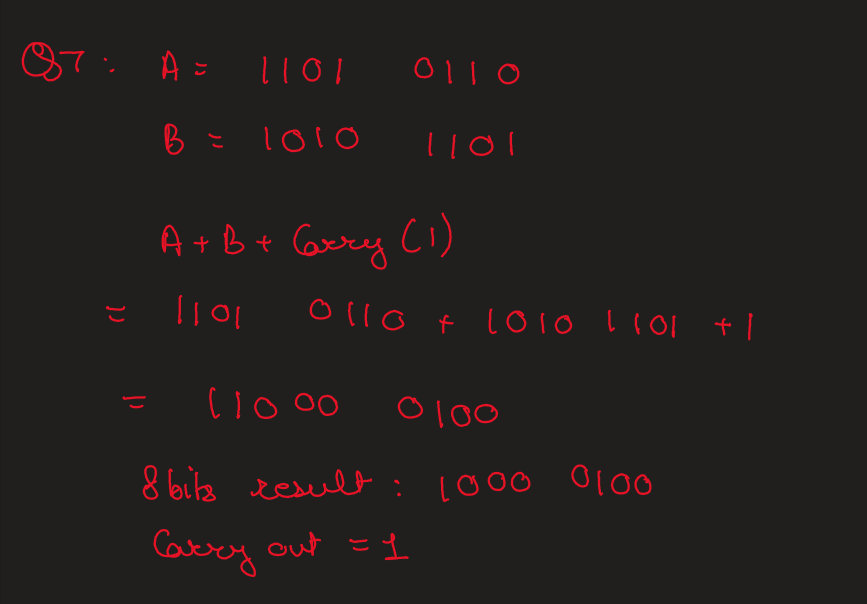 Q7: A = 1101 0110
B = 1010 1101
A + B + Carry (1)
= 1101 0110 + 1010 1101 + 1
= 11000 0100
8 bits result : 1000 0100
Carry out = 1